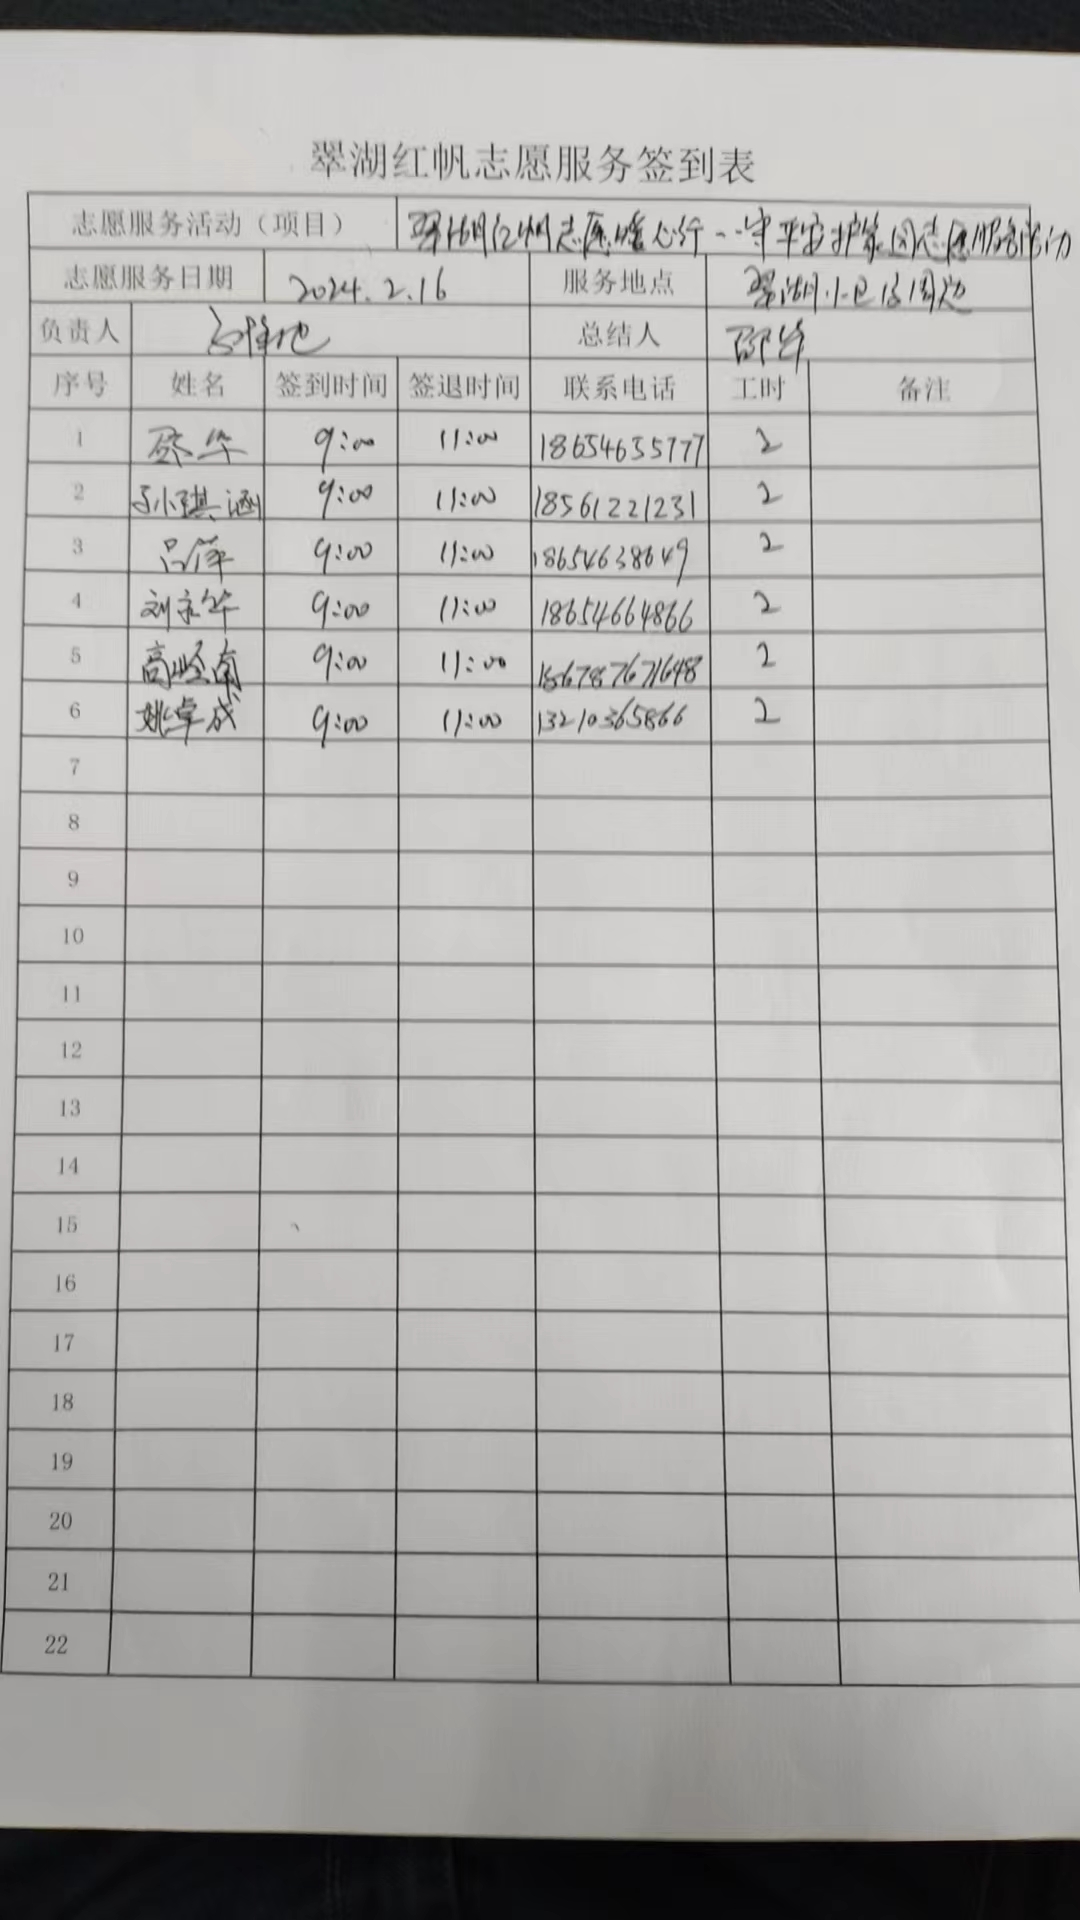 翠湖红帆志愿服务签到表
志愿服务活动（项目） 翠湖红帆志愿暖心行--守平安护家园志愿服务活动
志愿服务日期 2024.2.16 服务地点 翠湖小区及周边
负责人 总结人 邵华
序号 姓名 签到时间 签退时间 联系电话 工时 备注
1 华 9:00 11:00 18654655777 2
2 孙琪涵 9:00 11:00 18561221231 2
3 吕萍 9:00 11:00 18654638649 2
4 刘京华 9:00 11:00 18654664866 2
5 高岭南 9:00 11:00 2
6 姚卓成 9:00 11:00 13210365866 2
7
8
9
10
11
12
13
14
15
16
17
18
19
20
21
22